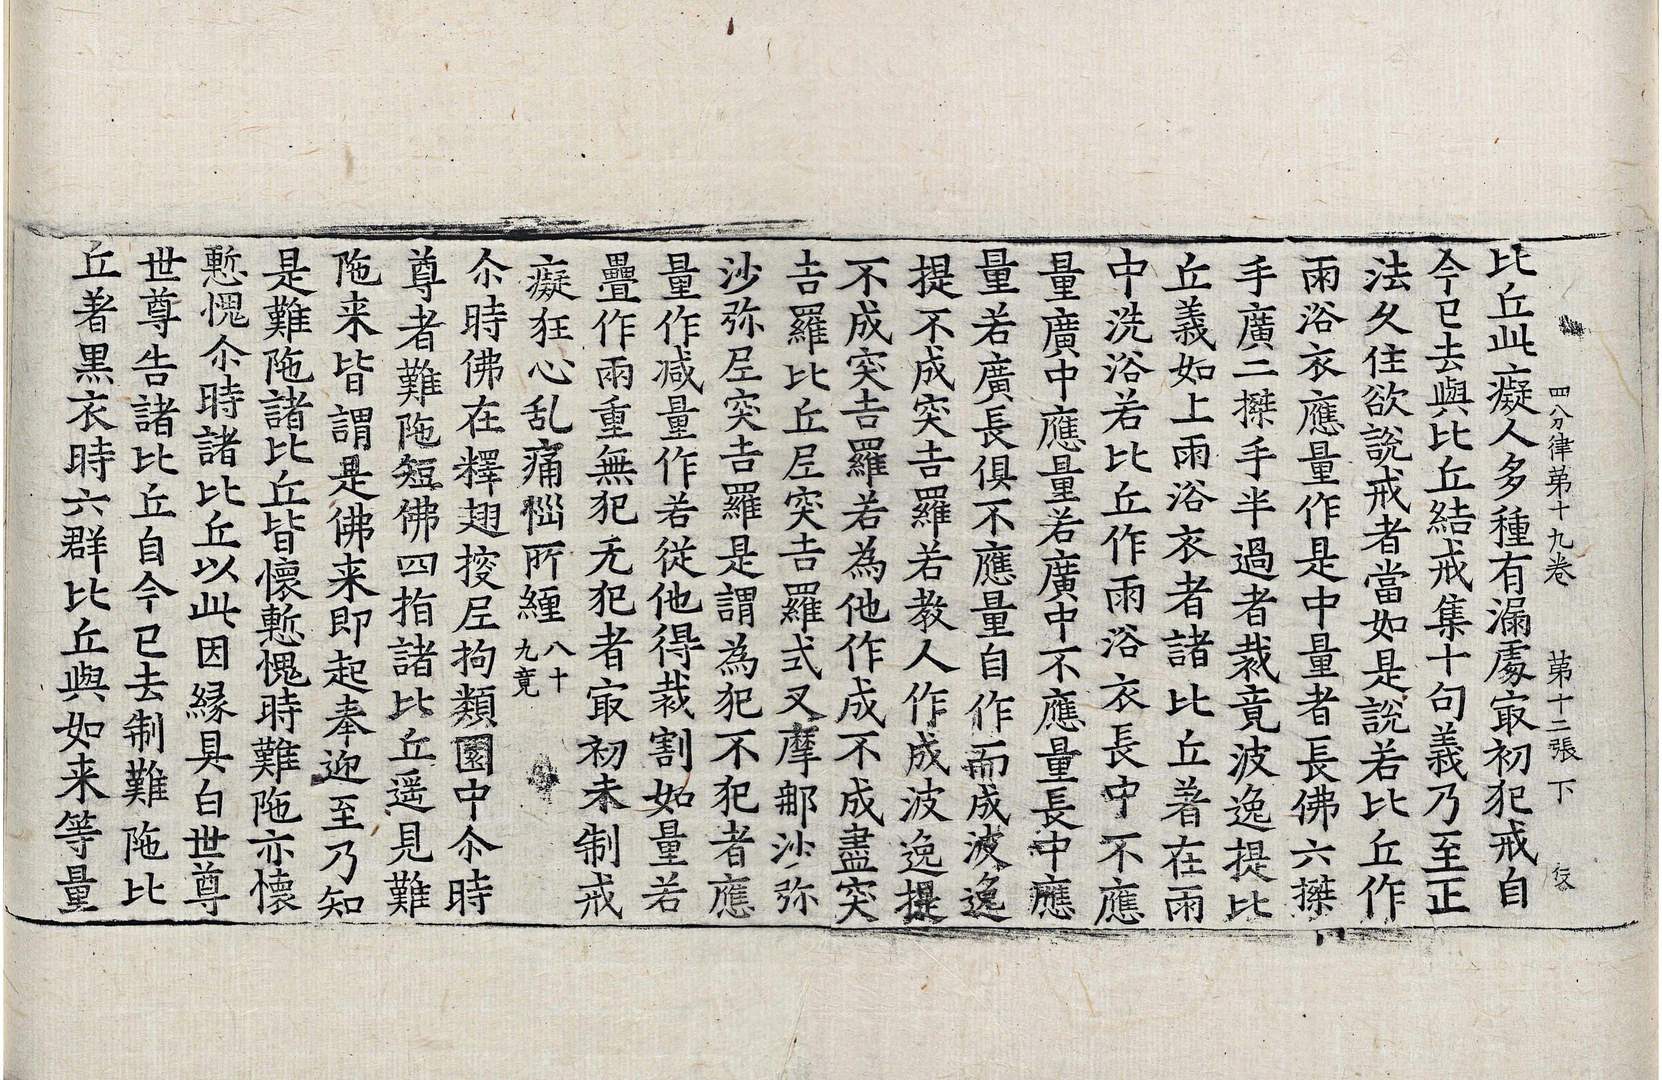 四分律苐十九卷　苐十二張　下
比丘此癡人多種有漏處冣初犯戒自
今已去與比丘結戒集十句義乃至正
法久住欲說戒者當如是說若比丘作
雨浴衣應量作是中量者長佛六搩
手廣二搩手半過者裁竟波逸提比
丘義如上雨浴衣者諸比丘著在雨
中洗浴若比丘作雨浴衣長中不應
量廣中應量若廣中不應量長中應
量若廣長俱不應量自作而成波逸
提不成突吉羅若教人作成波逸提
不成突吉羅若為他作成不成盡突
吉羅比丘尼突吉羅式叉摩那沙弥
沙弥尼突吉羅是謂為犯不犯者應
量作减量作若從他得裁割如量若
疊作兩重無犯无犯者冣初未制戒
癡狂心乱痛惱所纏八十九竟
尒時佛在釋翅搜尼拘類園中尒時
尊者難陁短佛四指諸比丘遥見難
陁来皆謂是佛来即起奉迎至乃知
是難陁諸比丘皆懷慙愧時難陁亦懷
慙愧尒時諸比丘以此因縁具白世尊
世尊告諸比丘自今已去制難陁比
丘著黑衣時六群比丘與如来等量